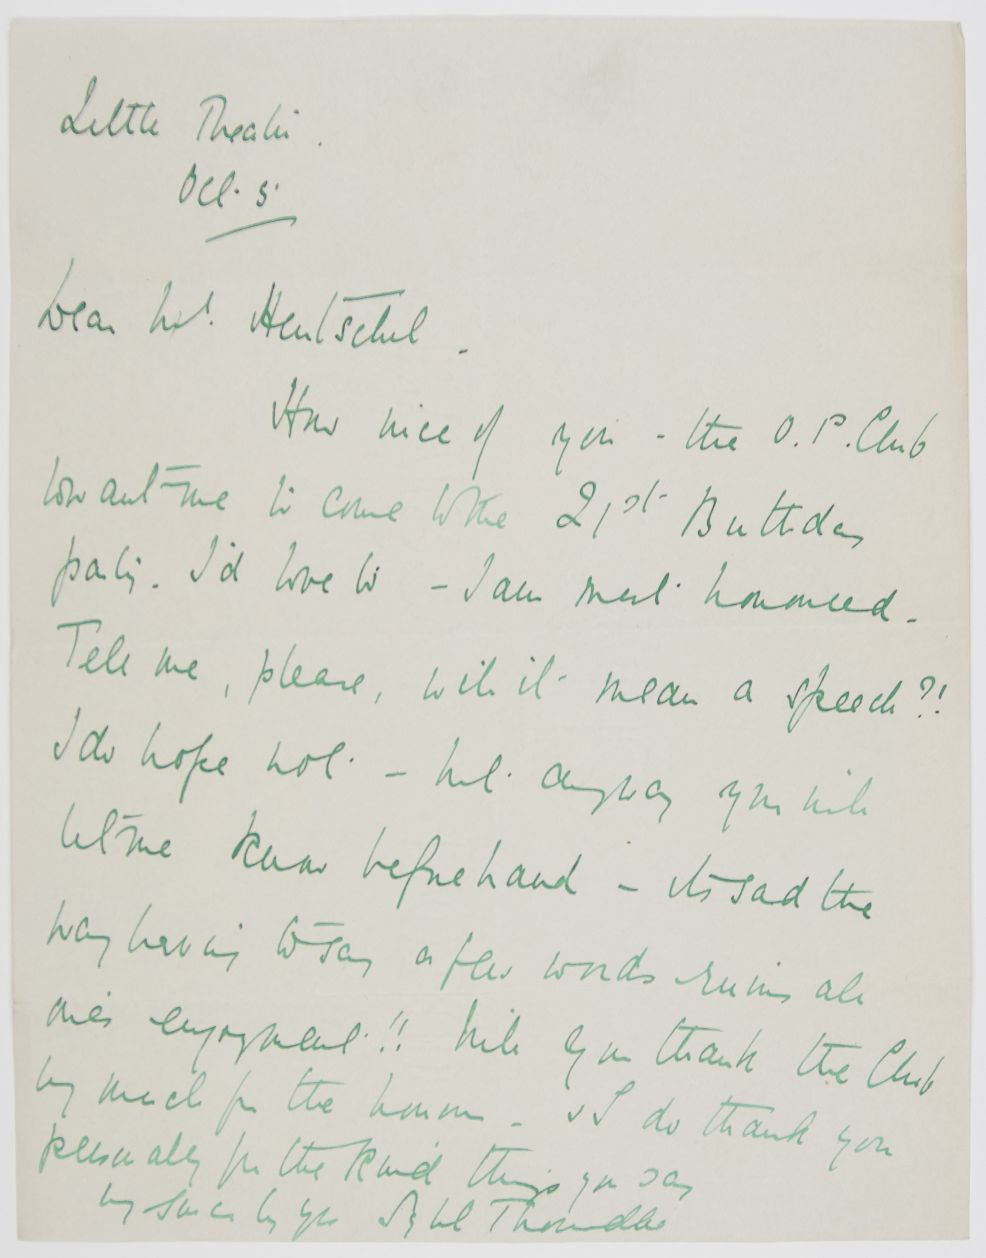 Little Theatre.
Oct. 5.
Dear Mr. Hentschel -
How nice of you - the O.P. Club
to want me to come to the 21st Birthday
party. I'd love to - I am most honoured -
Tell me, please, will it mean a speech?!
I do hope not - but anyway you will
let me know beforehand - its sad the
way having to say a few words ruins all
one's enjoyment!! Will you thank the Club
very much for the honour - & I do thank you
personally for the kind things you say
Very sincerely yrs Sybil Thorndike